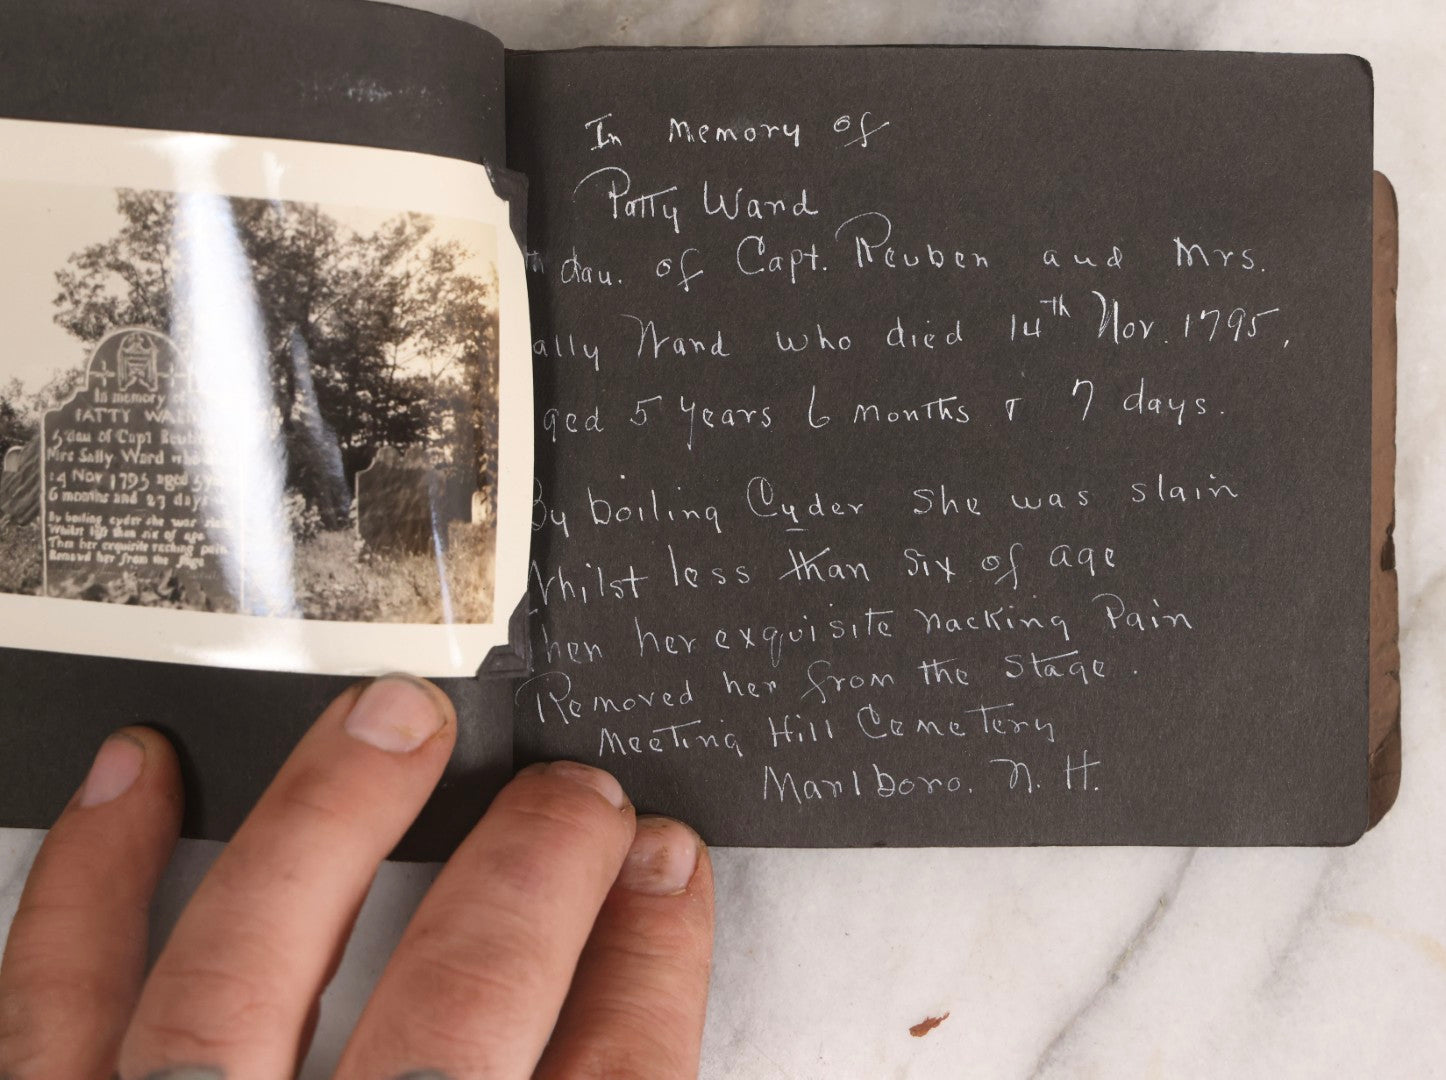 In memory of
PATTY WARD
5 dau of Capt Reuben
Mrs Sally Ward who
14 Nov 1795 aged 5 y
6 months and 27 days
By boiling cyder she was slain
Whilst less than six of age
Then her exquisite racking pain
Removed her from the stage
In memory of
Patty Ward
th dau. of Capt. Reuben and Mrs.
ally Ward who died 14th Nov. 1795,
ged 5 years 6 months & 7 days.
By boiling Cyder she was slain
Whilst less than six of age
Then her exquisite racking Pain
Removed her from the stage.
Meeting Hill Cemetery
Marlboro. N. H.